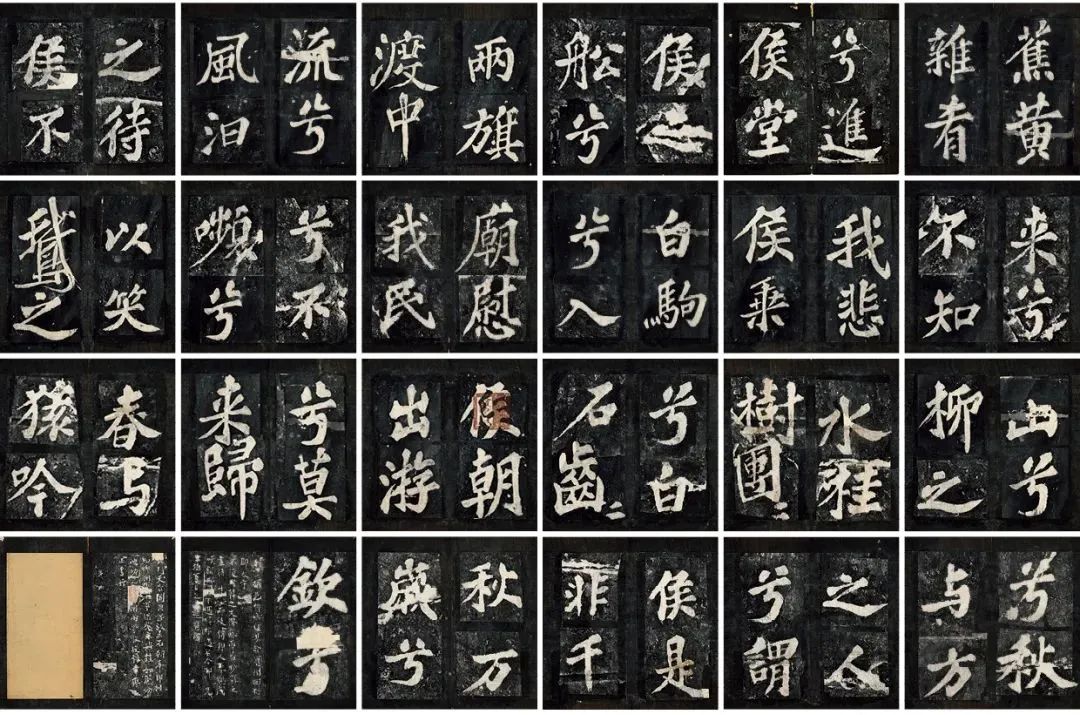 蕉黄
雜肴
兮進
侯堂
侯之
船兮
兩旗
渡中
流兮
風汩
之待
侯不
来兮
不知
我悲
侯乗
白駒
兮入
廟慰
我民
兮不
嚬兮
以笑
鵝之
山兮
柳之
水桂
樹團〻
兮白
石齒〻
侯朝
出游
兮莫
来歸
春与
猿吟
兮秋
与方
之人
兮謂
侯是
非千
秋万
歲兮
欽于